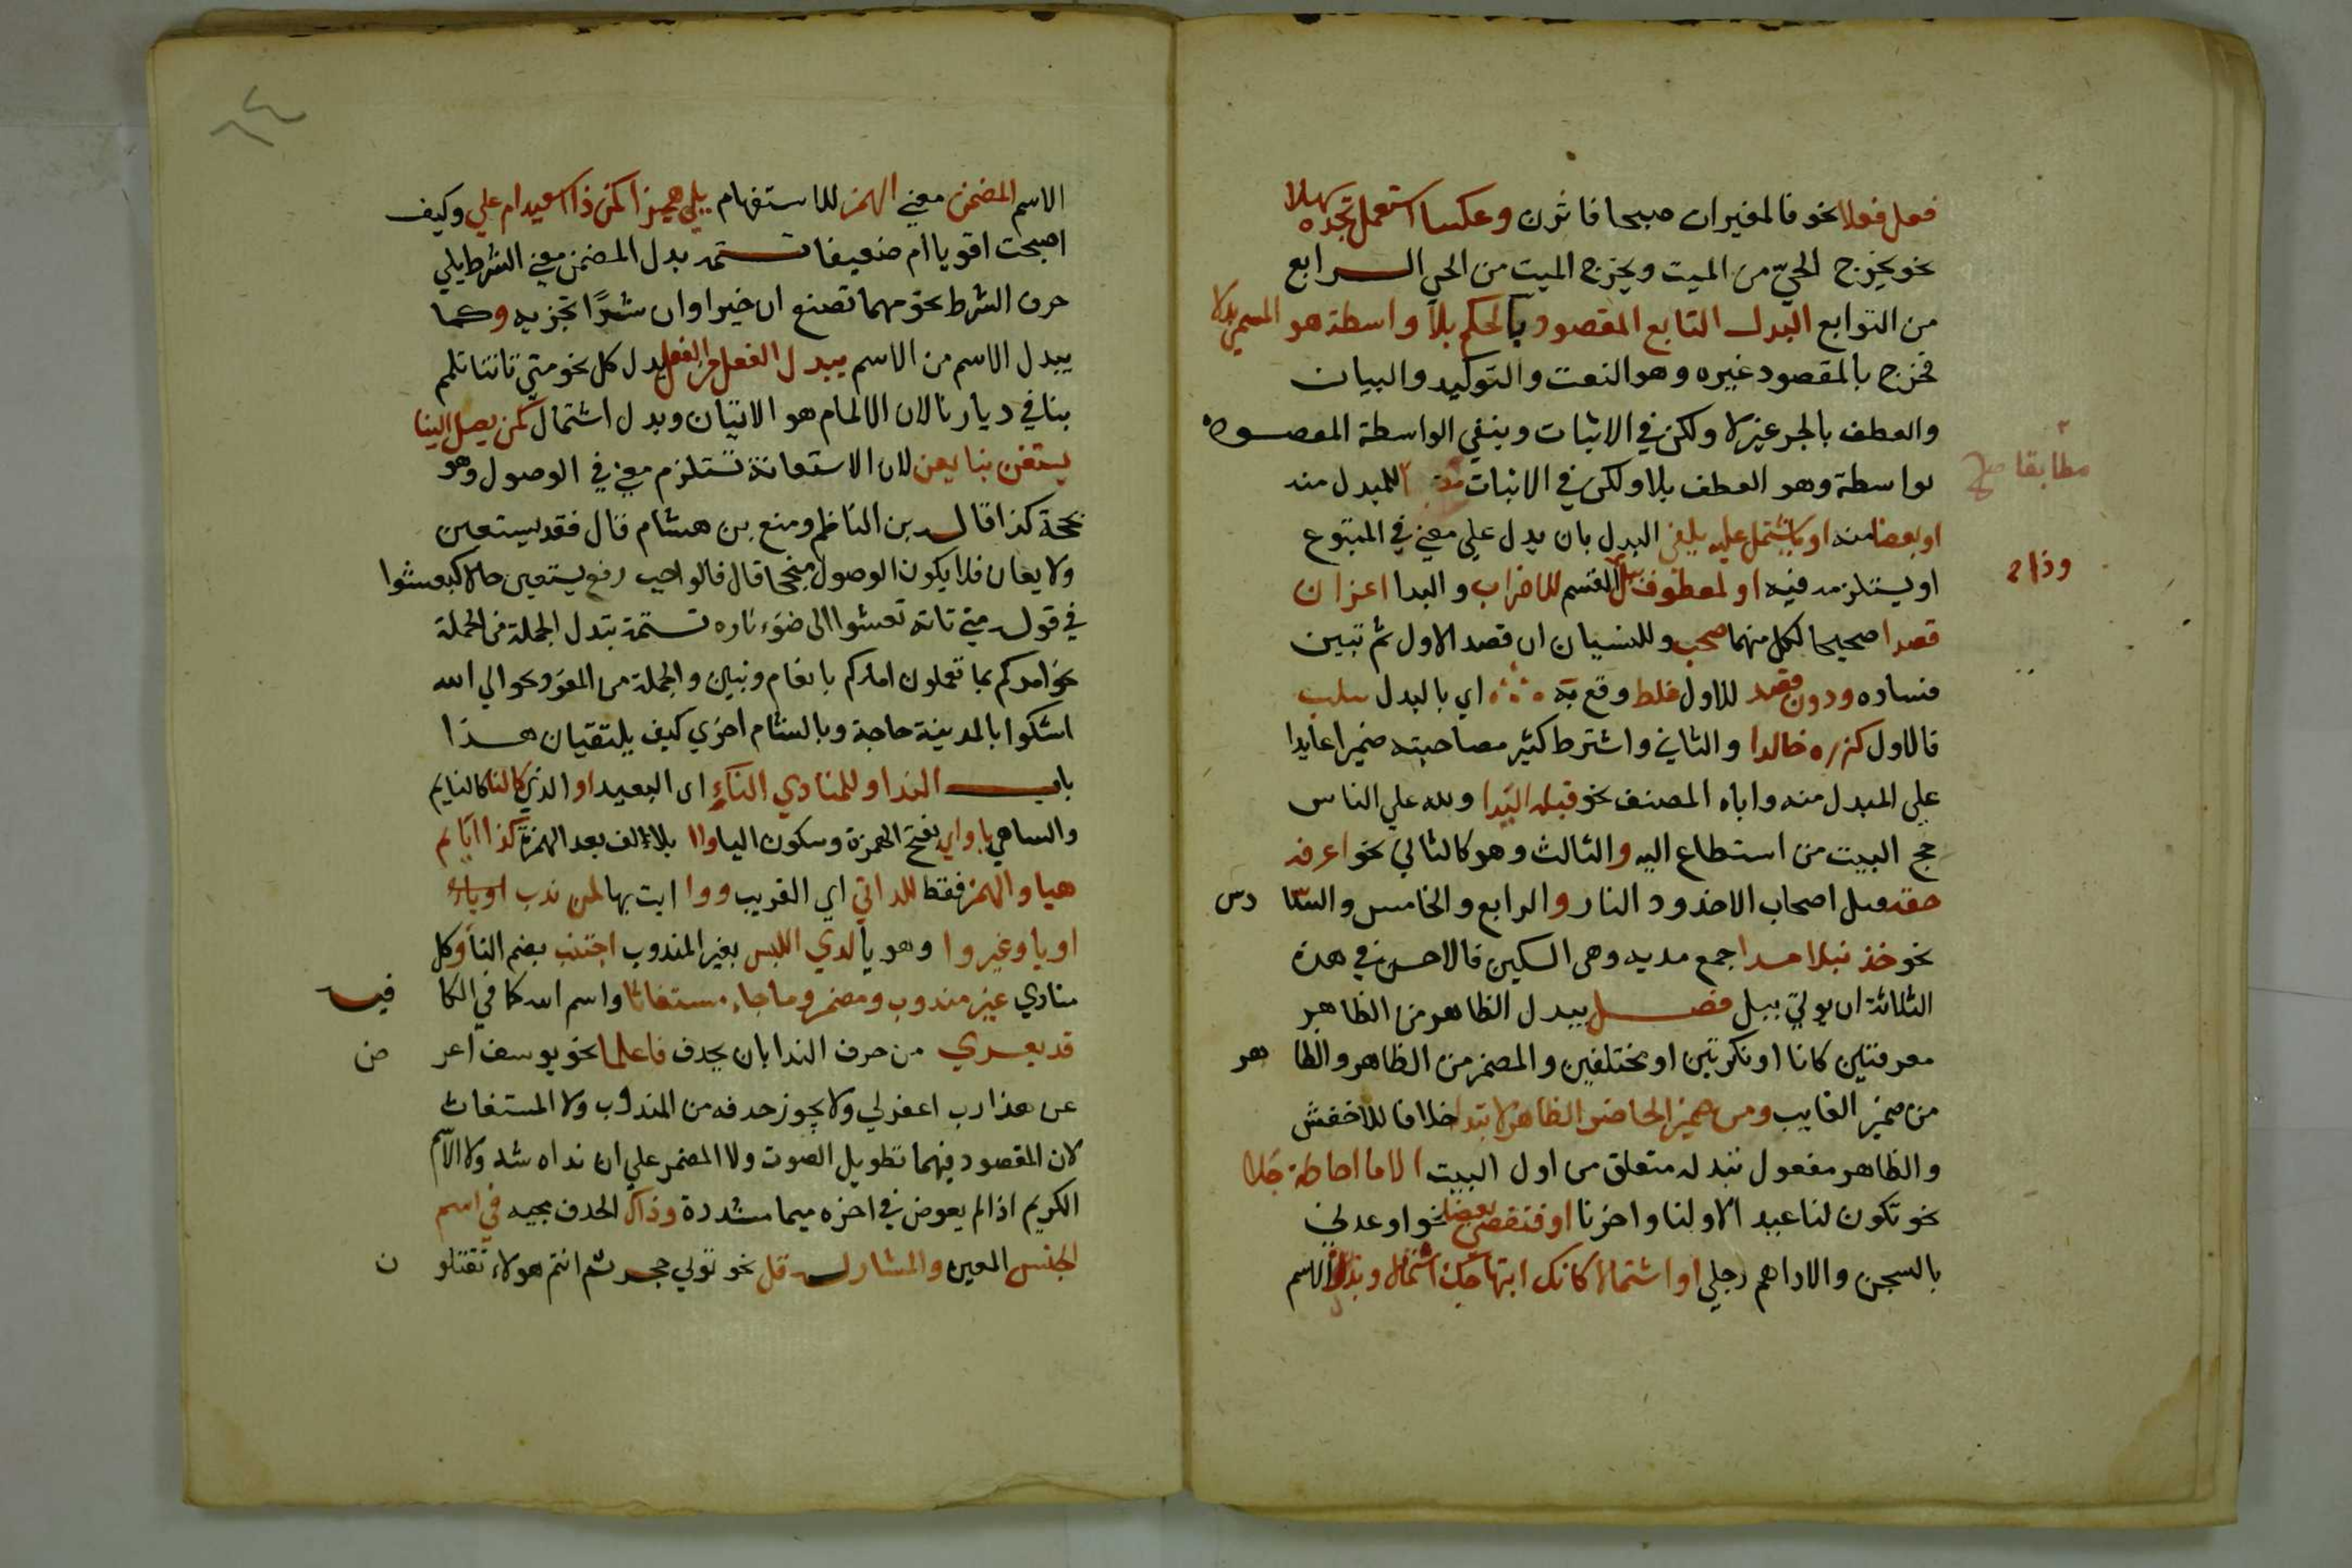 فعل فعلا نحو فالمغيرات صبحا فاثرن وعكسا استعمل تجده سهلا
نحو يخرج الحيّ من الميت ويخرج الميت من الحي الرابع
من التوابع البدل التابع المقصود بالحكم بلا واسطة هو المسمى بدلا
فخرج بالمقصود غيره وهو النعت والتوكيد والبيان
والعطف بالحرف غير لا ولكن في الاثبات وبنفي الواسطة المقصود
بواسطة وهو العطف بلا ولكن في الاثبات للمبدل منه
مطابقا صح
او بعضا منه او ما يشتمل عليه يلفى البدل بان يدل علي معنى في المتبوع
او يستلزمه فيه او لمعطوف ببل القسم للاضراب والبدا اعزان
وذا
قصدا صحيحا لكل منهما صحب وللنسيان ان قصد الاول ثم تبين
فساده ودون قصد للاول غلط وقع به اي بالبدل سلب
فالاول كزره خالدا والثاني واشترط كثير مصاحبته ضميرا عايدا
علي المبدل منه واباه المصنف نحو قبله اليدا ولله علي الناس
حج البيت من استطاع اليه والثالث وهو كالثاني نحو اعرفه
حقه وقتل اصحاب الاخدود النار والرابع والخامس والسا دس
نحو خذ نبلا مدا جمع مدية وهي السكين فالاحسن في هذه
الثلاثة ان يوتي ببل فصل يبدل الظاهر من الظاهر
معرفتين كانا او نكرتين او مختلفين والمضمر من الظاهر والظا هر
من ضمير الغايب ومن ضمير الحاضر الظاهر لا تبدله خلافا للاخفش
والظاهر مفعول تبدله متعلق من اول البيت الا ما احاطة جلا
نحو تكون لنا عيدا لاولنا واخرنا او اقتضي بعضا نحو اوعدني
بالسجن والاداهم رجلي او اشتمالا كانك ابتهاجك استمالا وبدل الاسم
٦٤
الاسم المضمن معنى الهمز للاستفهام يلي همزا كمن ذا اسعيد ام علي وكيف
اصبحت اقويا ام ضعيفا تتمه بدل المضمن معنى الشرط يلي
حرف الشرط نحو مهما تصنع ان خيرا وان شرًا تجز به وكما
يبدل الاسم من الاسم يبدل الفعل من الفعل بدل كل نحو متي تاتنا تلمم
بنا في ديارنا لان الالمام هو الاتيان وبدل اشتمال كمن يصل الينا
يستعن بنا يعن لان الاستعانة تستلزم معنى في الوصول وهو
نجحة كذا قال بن الناظم ومنع بن هشام قال فقد يستعين
ولا يعان فلا يكون الوصول منجحا قال فالواجب رفع يستعين حالا كتعشوا
في قوله متي تاته تعشوا الى ضوء ناره تتمة تبدل الجملة من الجملة
نحو امدكم بما تعملون امدكم بانعام وبنين والجملة من المفرد نحو الي الله
اشكوا بالمدينة حاجة وبالشام اخري كيف يلتقيان هذا
باب الندا وللمنادي الناءِ اي البعيد او الذي كالنا كالنايم
والساهي يا واي بفتح الهمزة وسكون اليا وآا بلا الف بعد الهمزة كذا ايا ثم
هيا والهمز فقط للداني اي القريب ووا ايت بها لمن ندب او يا
او يا وغير وا وهو يا لدي اللبس بغير المندوب اجتنب بضم التا وكل
منادي غير مندوب ومضمر وما جاء مستغاثا واسم الله كما في الكا فيه
قد يعري من حرف الندا بان يحذف فاعلما نحو يوسف اعر ض
عن هذا رب اغفر لي ولا يجوز حذفه من المندوب ولا المستغاث
لان المقصود فيهما تطويل الصوت ولا المضمر علي ان نداه شذ ولا الاسم
الكريم اذا لم يعوض في اخره ميما مشددة وذاك الحذف مجيه في اسم
الجنس المعين والمشار له قل نحو ثوبي حجر ثم انتم هولاء تقتلو ن